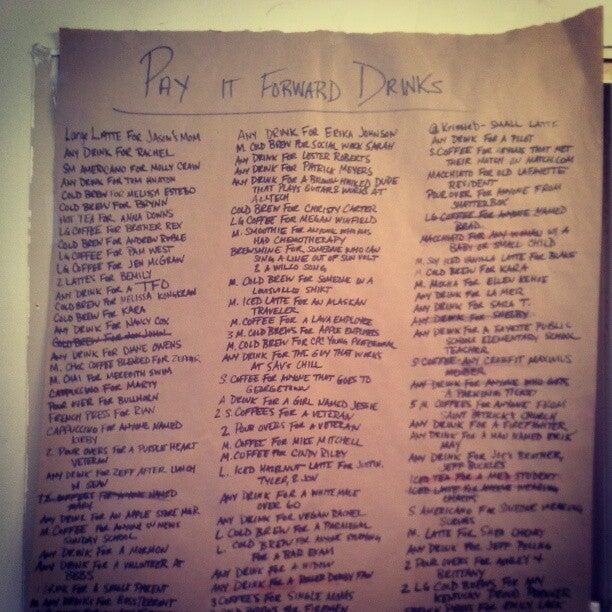 PAY IT FORWARD DRINKS
LARGE LATTE FOR JASON'S MOM
ANY DRINK FOR RACHEL
SM AMERICANO FOR MILLY CRAIN
ANY DRINK FOR TOM HILTON
COLD BREW FOR MELISSA ESTEBO
COLD BREW FOR BRYNN
HOT TEA FOR ANNA DOWNS
LG COFFEE FOR BROTHER REX
COLD BREW FOR ANDREW RUBLE
LG COFFEE FOR PAM WEST
LG COFFEE FOR JEN MCGRAW
2 LATTES FOR BEMILY
ANY DRINK FOR A TFO
COLD BREW FOR MELISSA
COLD BREW FOR KARA
ANY DRINK FOR NANCY COX
COLD BREW FOR JON JOHN
ANY DRINK FOR DIANE OWENS
M. CHOC COFFEE BLENDED FOR
M. CHAI FOR MEREDITH SWIM
CAPPUCCINO FOR MARTY
POUR OVER FOR BULLHORN
FRENCH PRESS FOR RIAN
CAPPUCCINO FOR ANYONE NAMED
KIRBY
2 POUR OVERS FOR A PURPLE HEART
VETERAN
ANY DRINK FOR JEFF AFTER LUNCH
W SEAN
FOR ANYONE NAMED
MARY
ANY DRINK FOR AN APPLE STORE MGR
M. COFFEE FOR ANYONE IN NEWS
SUNDAY SCHOOL
ANY DRINK FOR A MORMON
ANY DRINK FOR A VOLUNTEER AT
BBBS
1 DRINK FOR A SINGLE PARENT
ANY DRINKS FOR
ANY DRINK FOR ERIKA JOHNSON
M. COLD BREW FOR SOCIAL WORK SARAH
ANY DRINK FOR LESTER ROBERTS
ANY DRINK FOR PATRICK MEYERS
ANY DRINK FOR A BROWN HAIRED DUDE
THAT PLAYS GUITAR & WORKS AT
ALLTECH
COLD BREW FOR CHRISTY CARTER
LG COFFEE FOR MEGAN WINFIELD
M. SMOOTHIE FOR ANYONE WHO HAS
HAD CHEMOTHERAPY
BREWSHINE FOR SOMEONE WHO CAN
SING A LINE OUT OF SUN VOLT
& A WILCO SONG
M. COLD BREW FOR SOMEONE IN A
LOUISVILLE SHIRT
M. ICED LATTE FOR AN ALASKAN
TRAVELER
M. COFFEE FOR A LAVA EMPLOYEE
3 M. COLD BREWS FOR APPLE EMPLOYEES
M. COLD BREW FOR CRU YOUNG PROFESSIONAL
ANY DRINK FOR THE GUY THAT WORKS
AT SAV'S CHILL
S COFFEE FOR ANYONE THAT GOES TO
GEORGETOWN
A DRINK FOR A GIRL NAMED JESSIE
2 S. COFFEES FOR A VETERAN
2 POUR OVERS FOR A VETERAN
M. COFFEE FOR MIKE MITCHELL
M. COFFEE FOR CINDY RILEY
L. ICED HAZELNUT LATTE FOR JUSTIN,
TYLER, & JON
ANY DRINK FOR A WHITE MALE
OVER 60
ANY DRINK FOR VEGAN RACHEL
L. COLD BREW FOR A PARALEGAL
L. COLD BREW FOR ANYONE STUDYING
FOR A BAR EXAM
ANY DRINK FOR A WIDOW
ANY DRINK FOR A ROLLER DERBY FAN
3 COFFEES FOR SINGLE MOMS
DRINKS FOR FIREMEN
SMALL LATTE
ANY DRINK FOR A PILOT
S. COFFEE FOR ANYONE THAT MET
THEIR MATCH ON MATCH.COM
MACCHIATO FOR OLD LAFAYETTE
RESIDENT
POUR OVER FOR ANYONE FROM
SHATTERBOX
LG COFFEE FOR ANYONE NAMED
BRAD
MACCHIATO FOR ANY WOMAN W/ A
BABY OR SMALL CHILD
M. SOY ICED VANILLA LATTE FOR BLAKE
M COLD BREW FOR KARA
M. MOCHA FOR ELLEN
ANY DRINK FOR LA MEIR
ANY DRINK FOR SARA T.
ANY DRINK FOR SHELBY
ANY DRINK FOR A FAYETTE PUBLIC
SCHOOL ELEMENTARY SCHOOL
TEACHER
S COFFEE ANY CROSSFIT MAXIMUS
MEMBER
ANY DRINK FOR ANYONE WHO GOT
A PARKING TICKET
5 M COFFEES FOR ANYONE FROM
SAINT PATRICK'S CHURCH
ANY DRINK FOR A FIREFIGHTER
ANY DRINK FOR A MAN NAMED
MAY
ANY DRINK FOR JOE'S BROTHER,
JEFF BUCKLES
ICED TEA FOR A MED STUDENT
ICED LATTE FOR ANYONE WEARING
S AMERICANO FOR SOMEONE WEARING
SCRUBS
M. LATTE FOR SHEA CHENEY
ANY DRINK FOR JEFF POLING
2 POUR OVERS FOR ASHLEY &
BRITTANY
2 LG COLD BREWS FOR ANY
KENTUCKY PROUD PRODUCER